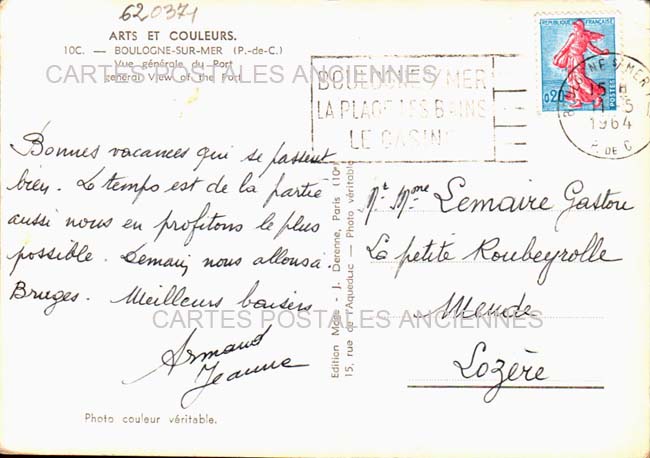 620371
ARTS ET COULEURS.
10C. — BOULOGNE-SUR-MER (P.-de-C.)
Vue générale du Port
general View of the Port
CARTES POSTALES ANCIENNES
REPUBLIQUE FRANÇAISE
0,20
POSTES
BOULOGNE S/MER
LA PLAGE LES BAINS
LE CASINO
BOULOGNE S/MER
15 H
5
1964
P. DE C.
Bonnes vacances qui se passent
bien. Le temps est de la partie
aussi nous en profitons le plus
possible. Demain nous allons à
Bruges. Meilleurs baisers
Armand
Jeanne
Photo couleur véritable.
Edition Mage - J. Derenne, Paris (10e)
15, rue de l'Aqueduc — Photo véritable
Mr Mme Lemaire Gaston
La petite Roubeyrolle
Mende
Lozère
CARTES POSTALES ANCIENNES